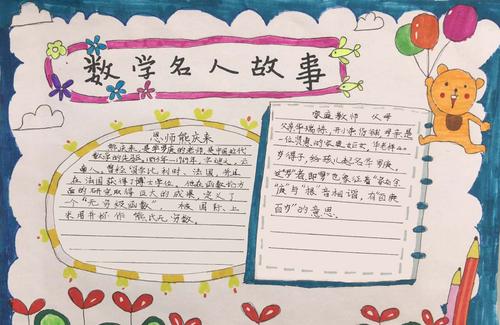 数学名人故事
恩师熊庆来
熊庆来，是华罗庚的老师，是中国近代
数学的先驱。1893年—1969年，字迪之，云
南人，曾经留学比利时、法国，并且
在法国获得了博士学位。他在函数论方
面的研究取得巨大的成果，定义了
一个“无穷级函数”，被国际上
采用并称作熊氏无穷数。
家庭教师 父母
父亲华瑞栋，开小杂货铺，母亲是
一位贤惠的家庭妇女，华老祥四
岁得子，给孩子起名华罗庚。
“箩”也象征着“家有余
”与“根”音相谐，有
百岁”的意思。